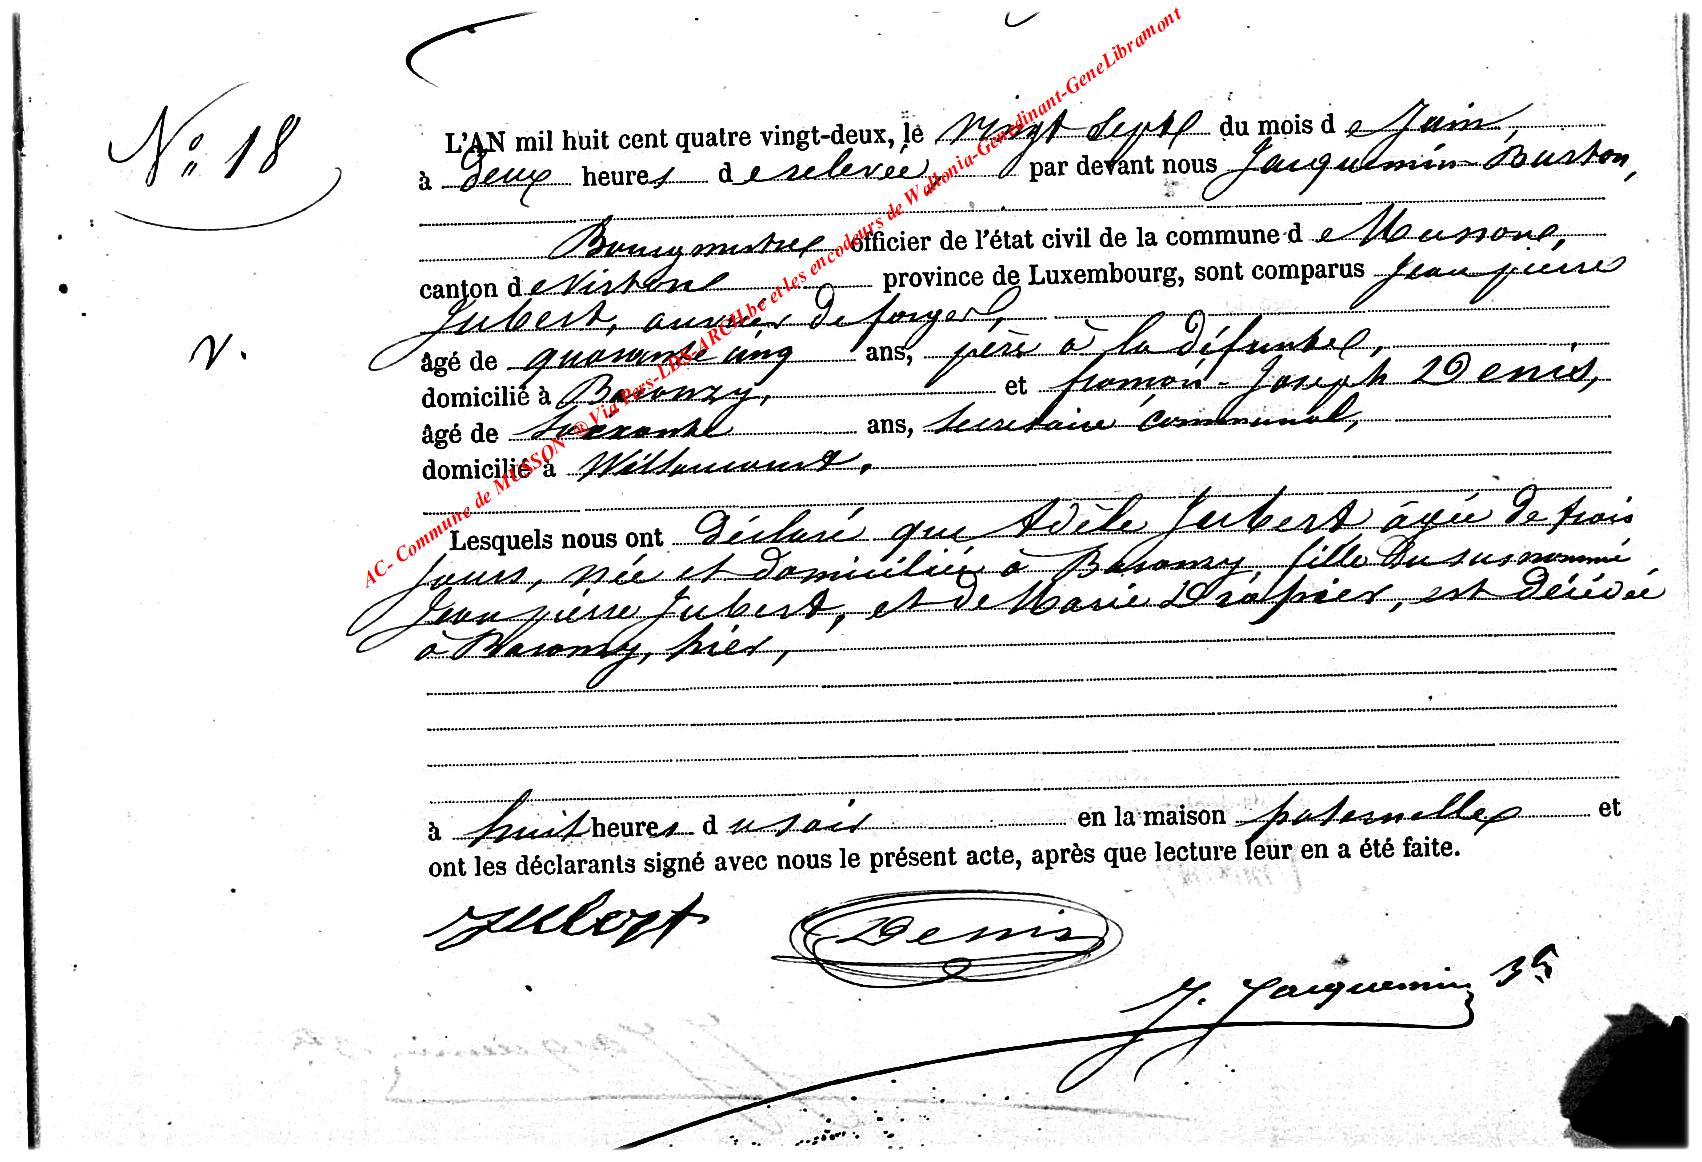 N° 18
L'AN mil huit cent quatre vingt-deux, le vingt sept du mois de Juin,
à deux heures de relevée, par devant nous Jacquemin Burton,
Bourgmestre officier de l'état civil de la commune de Musson,
canton de Virton province de Luxembourg, sont comparus Jean pierre
Jubert, ouvrier de forges,
v.
âgé de quarante cinq ans, père à la défunte,
domicilié à Baronzy, et françois-Joseph Denis,
âgé de soixante ans, secrétaire communal,
domicilié à Willancourt.
Lesquels nous ont déclaré que Adèle Jubert âgée de trois
jours, née et domiciliée à Baronzy, fille du susnommé
Jean pierre Jubert, et de Marie Drapier, est décédée
à Baronzy, hier,
à huit heures du soir en la maison paternelle et
ont les déclarants signé avec nous le présent acte, après que lecture leur en a été faite.
Jubert Denis
J. Jacquemin
AC- Commune de MUSSON ® Via Pers-LDS-ARCH.be et les encodeurs de Wallonia-Genedinant-GeneLibramont